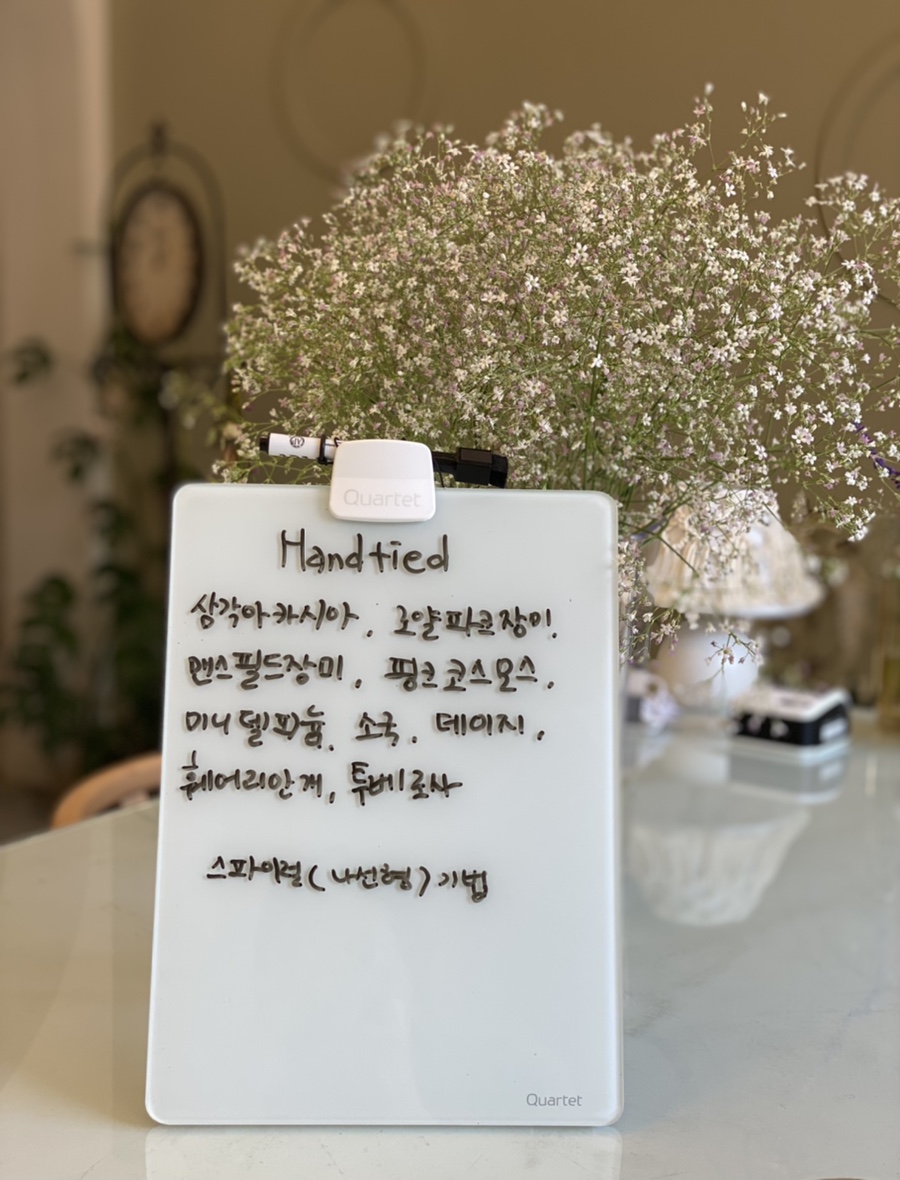 Quartet
Handtied
삼각아카시아, 로얄파크장미,
맨스필드장미,핑크코스모스,
미니델피늄, 소국, 데이지,
훼어리안개, 투베로사
스파이럴(나선형)기법
Quartet